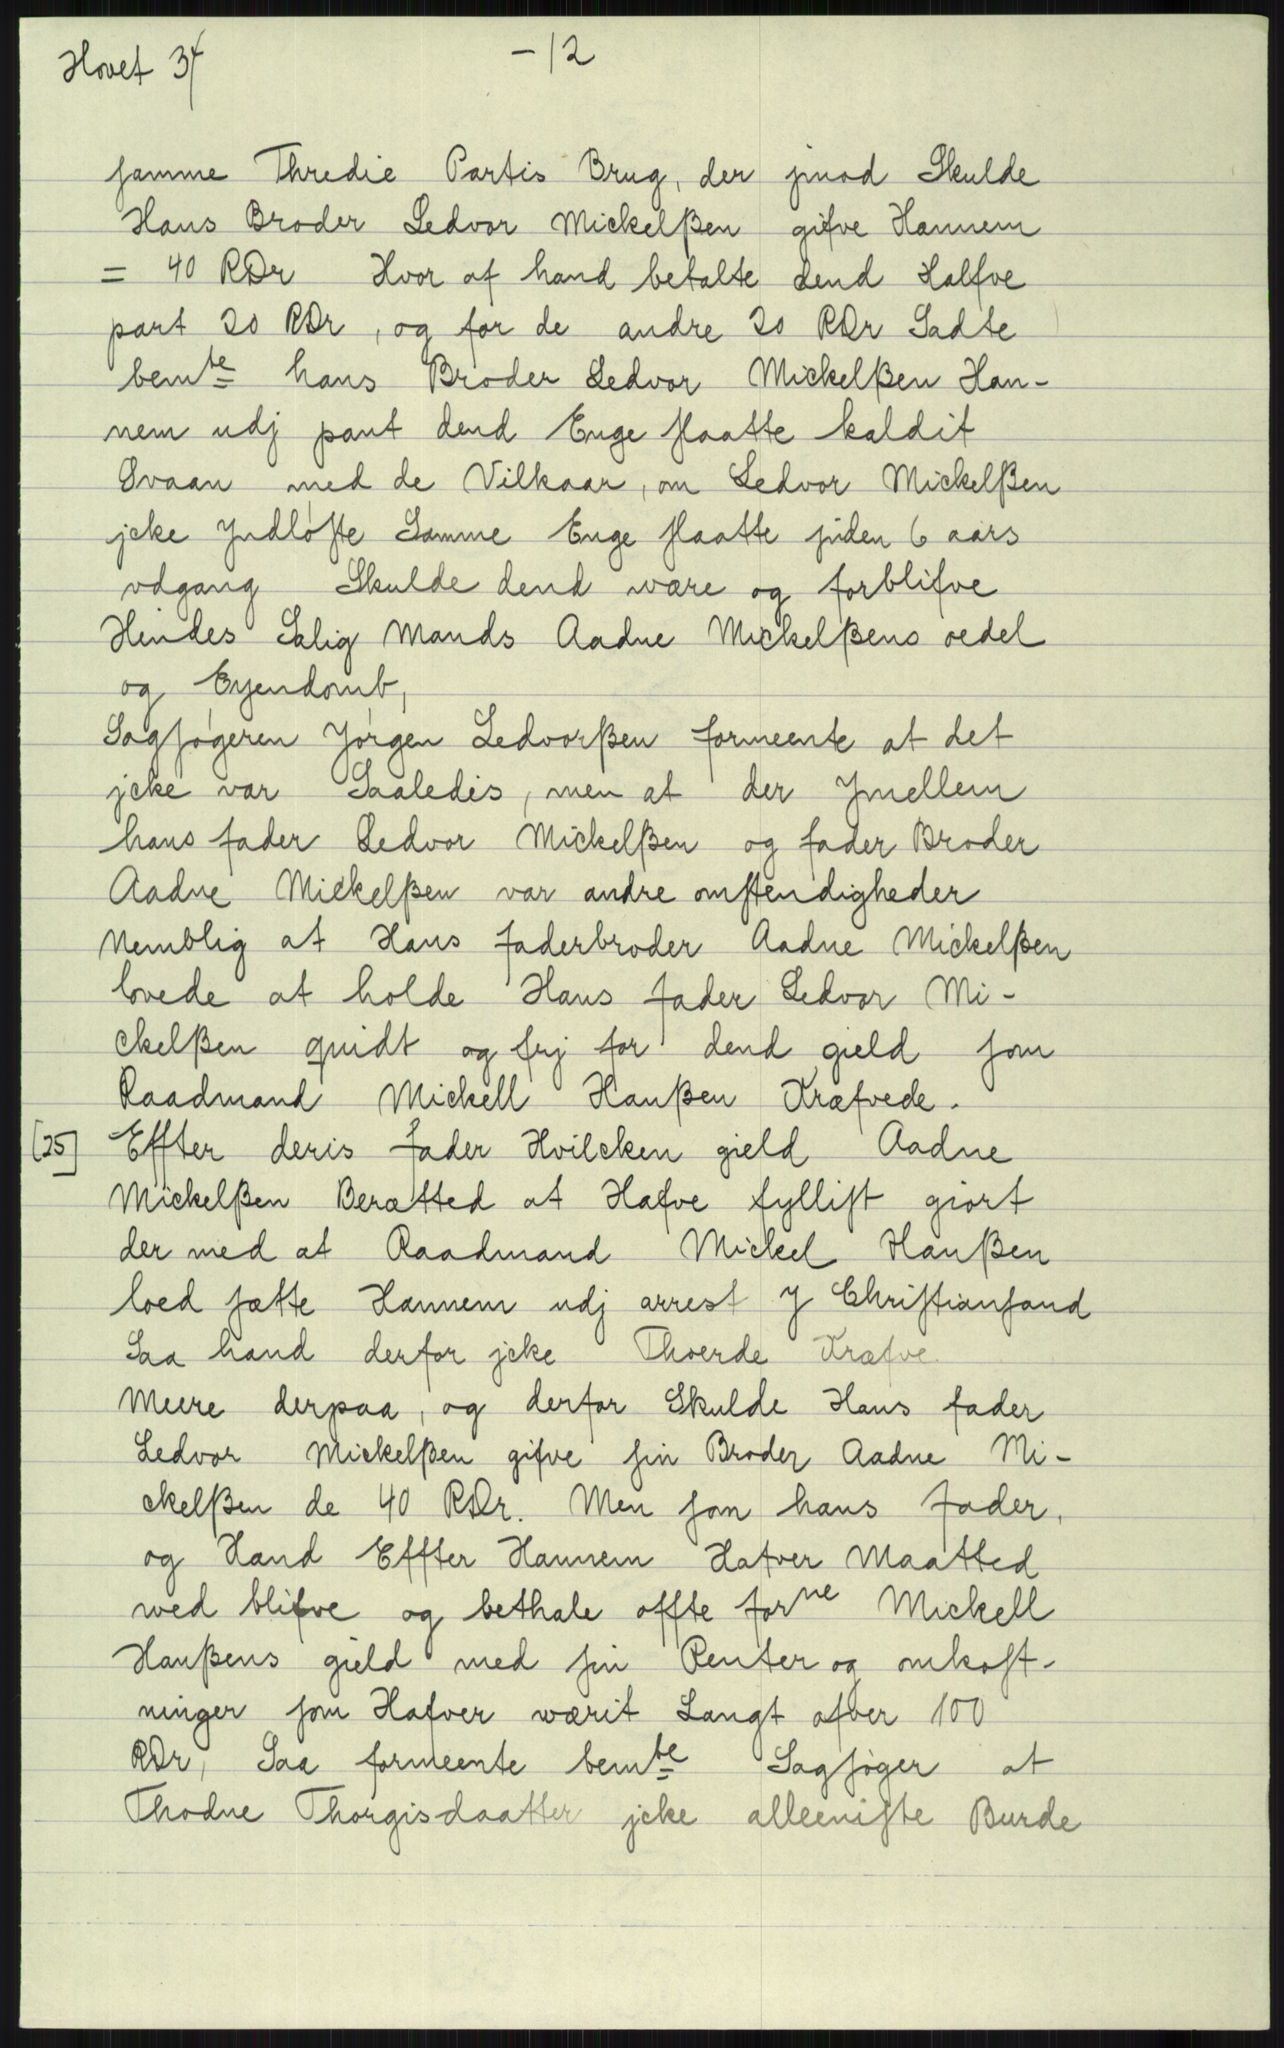 Hovet 34
- 12
samme Thredie Partis Brug, der jmod Skulde
Hans Broder Ledvor Mickelßen gifve Hannem
= 40 RDr Hvor af hand betalte dend Halfve
part 20 RDr, og for de andre 20 RDr Sadte
bemte hans Broder Ledvor Mickelßen Han-
nem udj pant dend Enge slaatte kaldit
Svaan med de Vilkaar, om Ledvor Mickelßen
jcke Yndløste Samme Enge slaatte jnden 6 aars
vdgang Skulde dend være og forblifve
Hindes Salig Mands Aadne Mickelßens oedel
og Eyendomb,
Sagsøgeren Jørgen Ledvorßen formeente at det
jcke var Saaledis, men at der Ymellem
hans fader Ledvor Mickelßen og fader Broder
Aadne Mickelßen var andre omstendigheder
Nemblig at Hans faderbroder Aadne Mickelßen
lovede at holde Hans fader Ledvor Mi-
ckelßen quidt og frj for dend gield som
Raadmand Mickell Hanßen Kræfvede.
[25] Effter deris fader Hvilcken gield Aadne
Mickelßen Berætted at Hafve fyllist giort
der med at Raadmand Mickel Hanßen
loed sætte Hannem udj arrest J Christiansand
Saa hand derfor jcke Thoerde Kræfve
Meere derpaa, og derfor Skulde Hans fader
Ledvor Mickelßen gifve sin Broder Aadne Mi-
ckelßen de 40 RDr. Men som hans fader,
og Hand Effter Hannem Hafver Maatted
wed blifve og bethale offte forne Mickell
Hanßens gield med sin Renter og omkost-
ninger som Hafver wærit Langt ofver 100
RDr, Saa formeente bemte Sagsøger at
Thodne Thorgisdaatter jcke alleeniste Burde